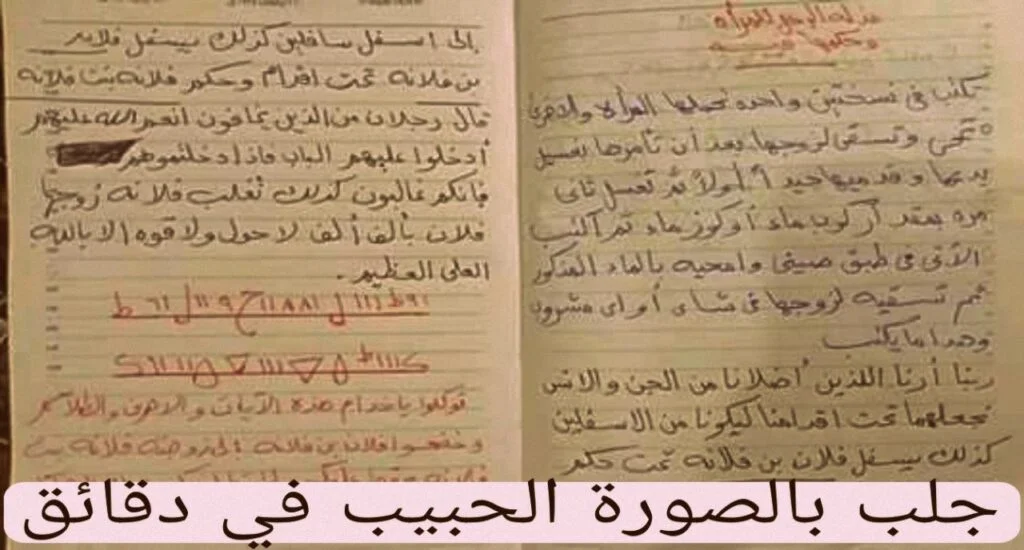 مذله الرجل للمرأه
وحكمها فيه
تكتب فى نسختين واحده تحملها المرأه والاخرى
تمحى وتسقى لزوجها بعد أن تأمرها بغسيل
يديها وقدميها جيدا أولا ثم تغسل ثانى
مره بمقدار كوب ماء أو كوز ماء ثم اكتب
الآتى فى طبق صينى وامحيه بالماء المذكور
ثم تسقيه لزوجها فى شاى أو اى مشروب
وهذا ما يكتب
ربنا أرنا اللذين أضلانا من الجن والانس
نجعلهما تحت اقدامنا ليكونا من الاسفلين
كذلك يسفل فلان بن فلانه تحت حكم
إلى اسفل سافلين كذلك يسفل فلان
بن فلانه تحت اقدام وحكم فلانه بنت فلانه
قال رجلان من الذين يخافون انعم الله عليهم
أدخلوا عليهم الباب فاذا دخلتموه
فانكم غالبون كذلك تغلب فلانه زوجها
فلان بألف ألف لا حول ولا قوه الا بالله
العلى العظيم.
توكلوا ياخدام هذه الآيات والاحرف والطلاسم
وخضعوا فلان بن فلانه الى زوجته فلانه بنت
جلب بالصورة الحبيب في دقائق